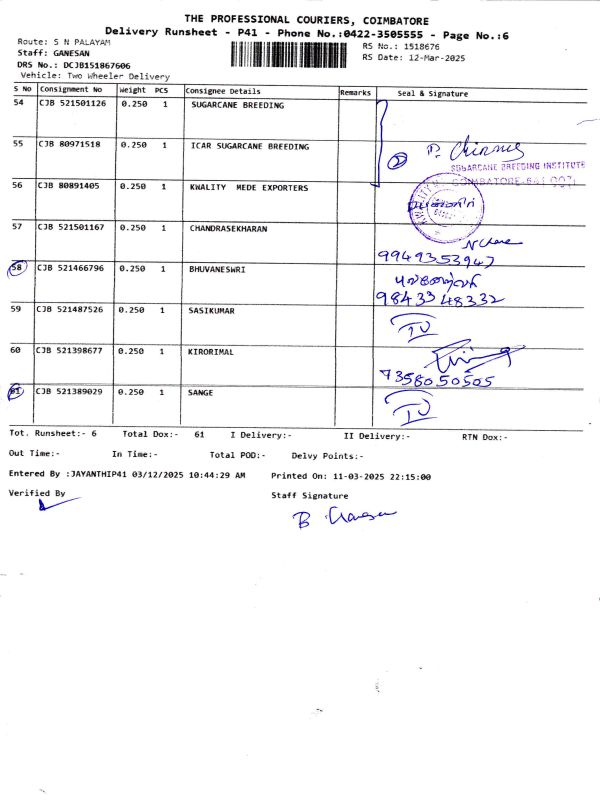 THE PROFESSIONAL COURIERS, COIMBATORE
Delivery Runsheet - P41 - Phone No.:0422-3505555 - Page No.:6
Route: S N PALAYAM
Staff: GANESAN
DRS No.: DCJB151867606
Vehicle: Two Wheeler Delivery
RS No.: 1518676
RS Date: 12-Mar-2025
S No Consignment No Weight PCS Consignee Details Remarks Seal & Signature
54 CJB 521501126 0.250 1 SUGARCANE BREEDING
55 CJB 80971518 0.250 1 ICAR SUGARCANE BREEDING
2
SUGARCANE BREEDING INSTITUTE
COIMBATORE-641 007
56 CJB 80891405 0.250 1 KWALITY MEDE EXPORTERS
57 CJB 521501167 0.250 1 CHANDRASEKHARAN
9949353947
58 CJB 521466796 0.250 1 BHUVANESWRI
9843348332
59 CJB 521487526 0.250 1 SASIKUMAR
60 CJB 521398677 0.250 1 KIRORIMAL
7358050505
61 CJB 521389029 0.250 1 SANGE
Tot. Runsheet:- 6 Total Dox:- 61 I Delivery:- II Delivery:- RTN Dox:-
Out Time:- In Time:- Total POD:- Delvy Points:-
Entered By :JAYANTHIP41 03/12/2025 10:44:29 AM Printed On: 11-03-2025 22:15:00
Verified By Staff Signature